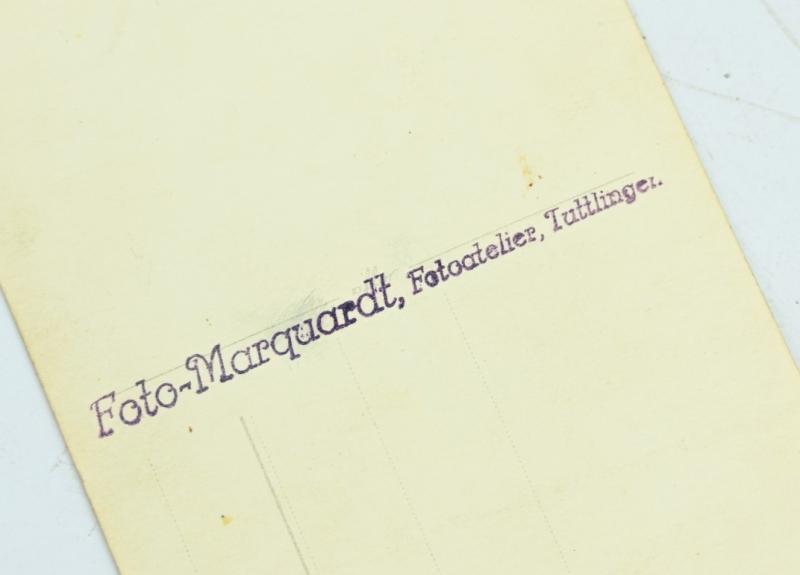 Foto-Marquardt, Fotoatelier, Tuttlingen